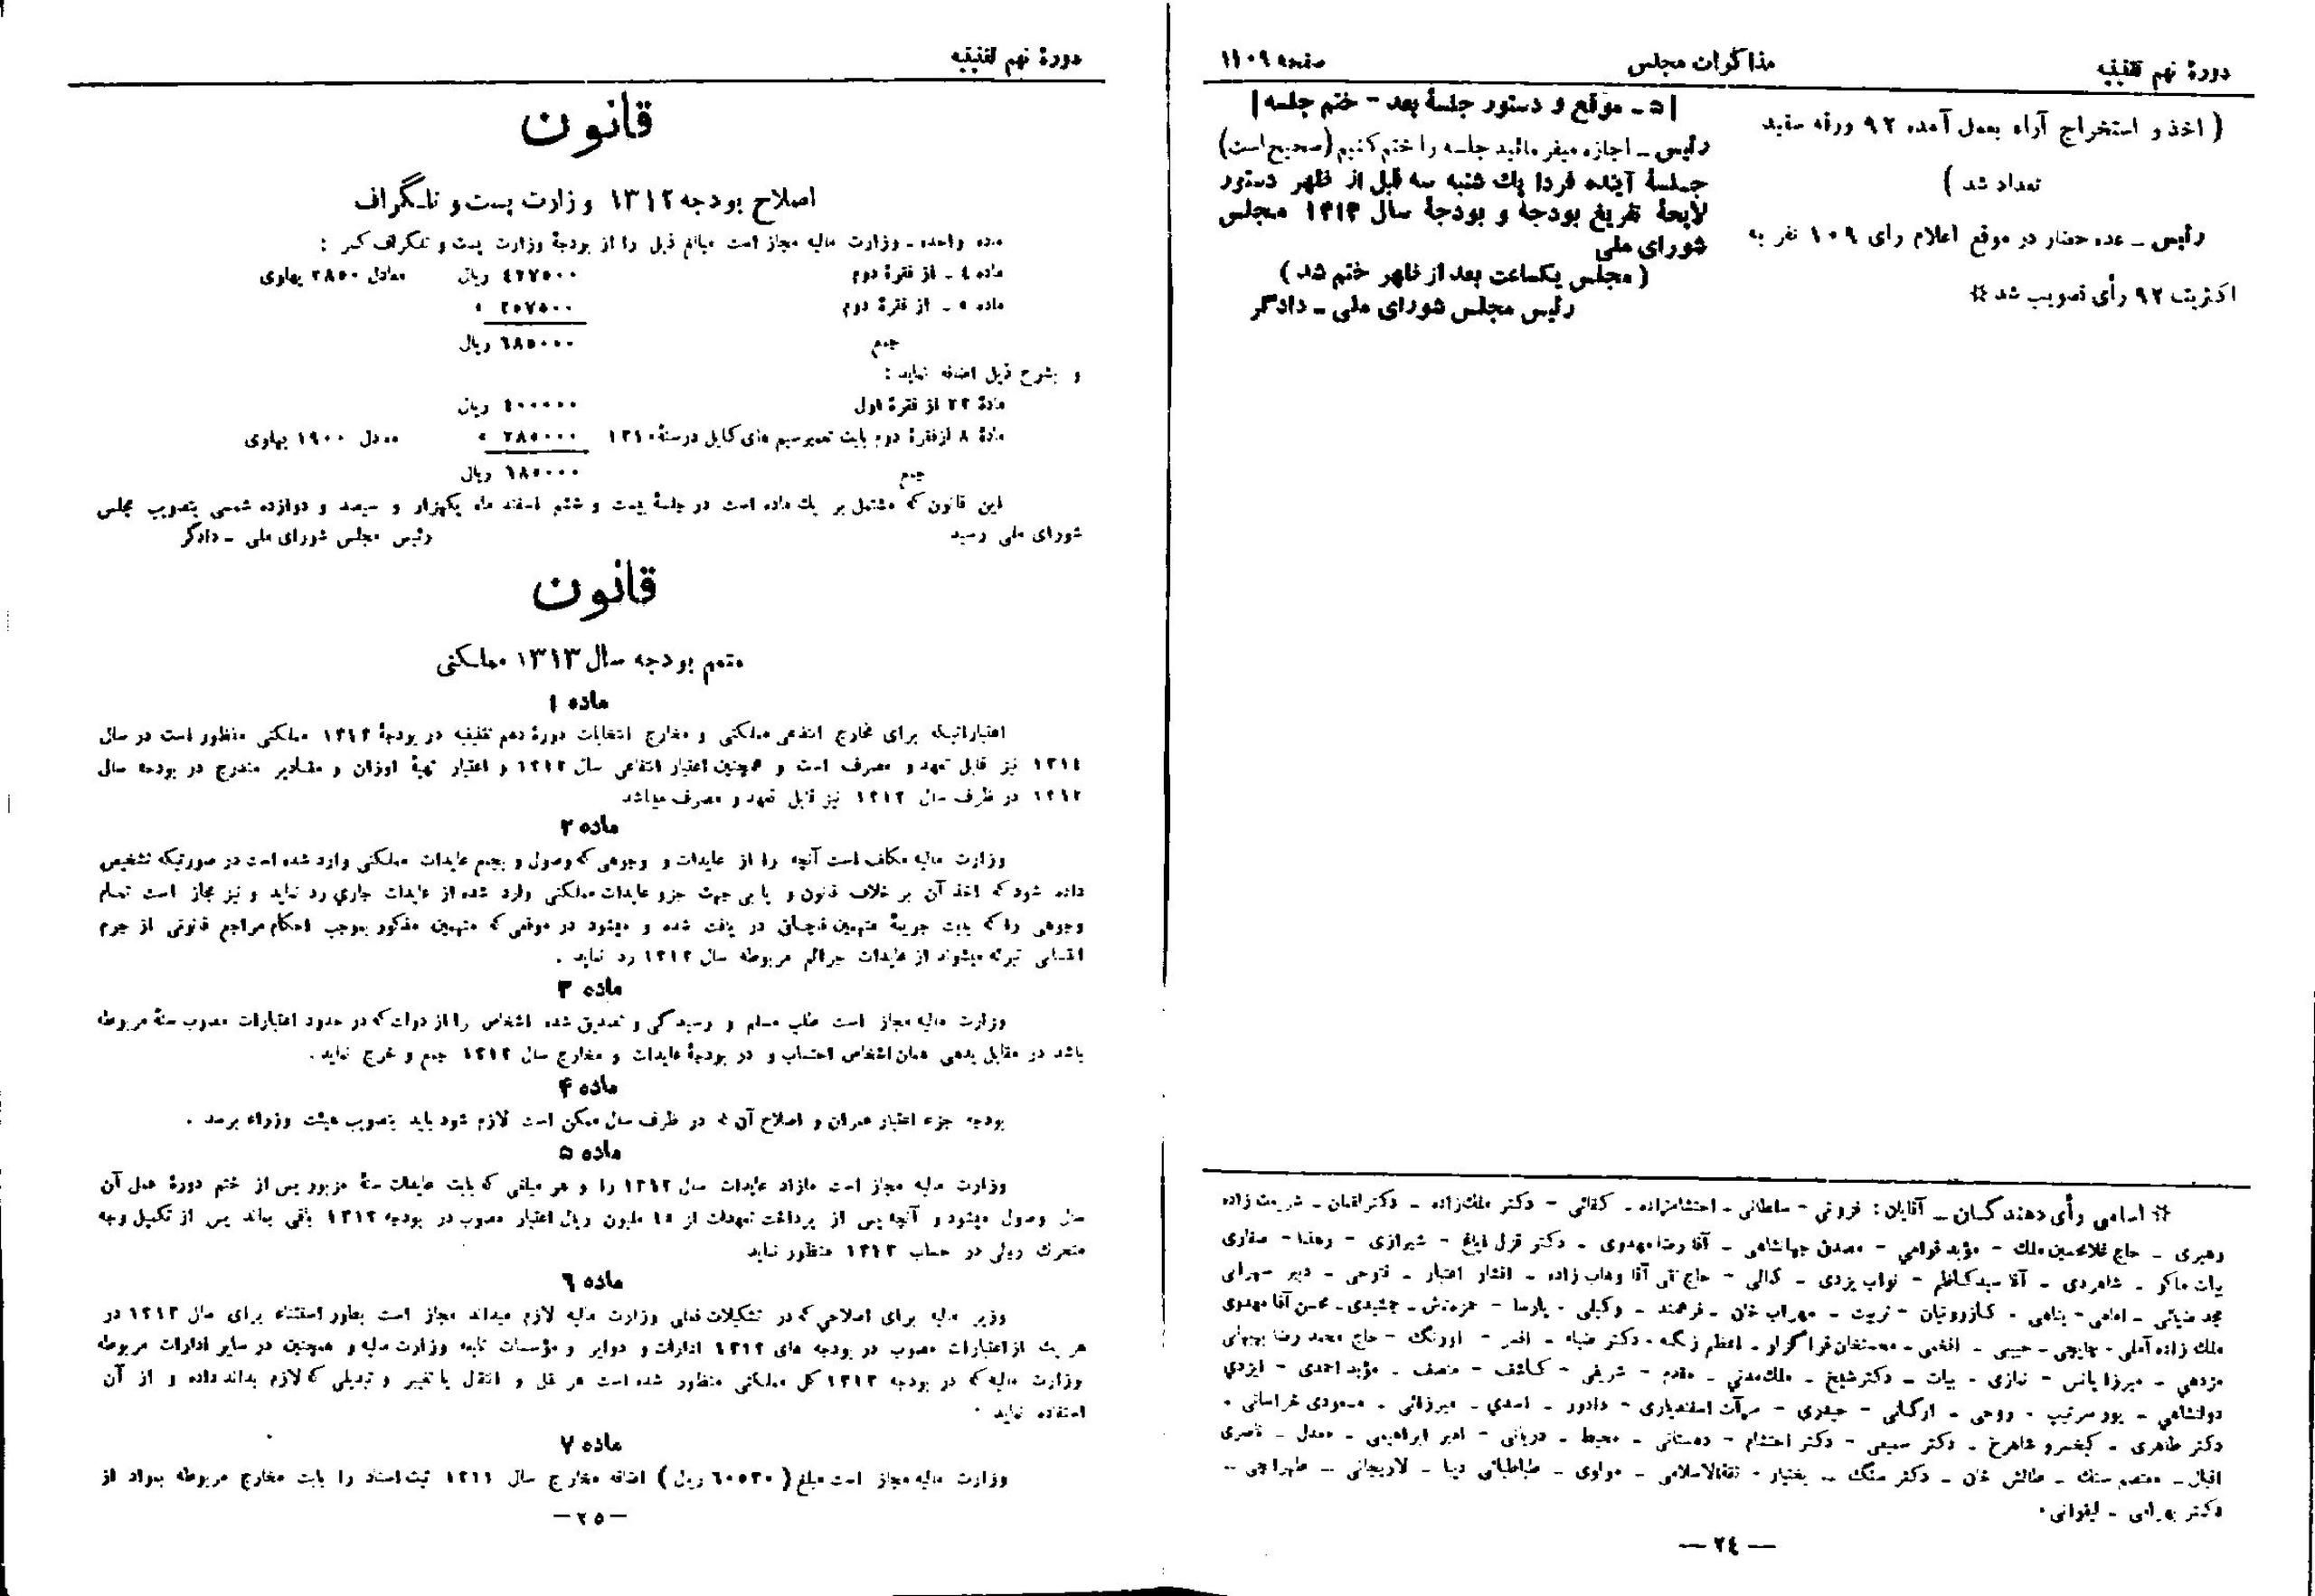 دورهٔ نهم تقنینیه
مذاکرات مجلس
صفحه ۱۱۰۹
( اخذ و استخراج آراء بعمل آمده ۹۲ ورقه سفید
تعداد شد )
رئیس ـ عده حضار در موقع اعلام رای ۱۰۹ نفر به
اکثریت ۹۲ رأی تصویب شد *
[ ۵ ـ موقع و دستور جلسهٔ بعد - ختم جلسه ]
رئیس ـ اجازه میفرمائید جلسه را ختم کنیم (صحیح است)
جلسهٔ آینده فردا یك شنبه سه قبل از ظهر دستور
لایحهٔ تفریغ بودجه و بودجهٔ سال ۱۳۱۳ مجلس
شورای ملی
( مجلس یکساعت بعد از ظهر ختم شد )
رئیس مجلس شورای ملی ـ دادگر
* اسامی رأی دهندگان ـ آقایان : فزونی - سلطانی - احتشامزاده - کفائی - دکتر ملك‌زاده - دکتر لقمان - شریعت زاده
رهبری - حاج غلامحسین ملك - مؤید قوامی - مصدق جهانشاهی - آقا رضا مهدوی - دکتر قزل ایاغ - شیرازی - رهنما - صفاری
بیات ماکو - شاهرودی - آقا سید کاظم - نواب یزدی - کمالی - حاج تقی آقا وهاب زاده - افشار - اعتبار - فتوحی - دبیر سهرابی
محمد ضیائی - امامی - پناهی - کازرونیان - تربیت - مهراب خان - فرهمند - وکیلی - پارسا - همزمنش - جمشیدی - محسن آقا مهدوی
ملك زاده آملی - چایچی - حبیبی - افخمی - قراگزلو - اعظم زنگنه - دکتر ضیاء - افسر - اورنگ - حاج محمد رضا بهبهانی
مژدهی - میرزا یانس - نمازی - بیات - دکتر شیخ - ملك‌مدنی - مقدم - شریفی - کاشف - منصف - مؤید احمدی - ایزدی
دولتشاهی - پور سرتیپ - روحی - ارگانی - حیدری - مرآت اسفندیاری - دادور - اسدی - میرزائی - مسعودی خراسانی -
دکتر طاهری - کیخسرو شاهرخ - دکتر سمیعی - دکتر احتشام - دهستانی - محیط - دربانی - امیر ابراهیمی - معدل - ناصری
اقبال - معتصم سنك - طالش خان - دکتر سنگ - بختیار - ثقةالاسلامی - مولوی - طباطبائی دیبا - لاریجانی - طهرانچی -
دکتر بهرامی - لیقوانی .
— ۲٤ —
دورهٔ نهم تقنینیه
قانون
اصلاح بودجه ۱۳۱۲ وزارت پست و تلگراف
ماده واحده ـ وزارت مالیه مجاز است مبالغ ذیل را از بودجهٔ وزارت پست و تلگراف کسر :
ماده ٤ ـ از فقرهٔ دوم ٤۲۷۵۰۰ ریال معادل ۲۸۵۰ پهلوی
ماده ۵ ـ از فقرهٔ دوم ۲۵۷۵۰۰ »
جمع ٦۸۵۰۰۰ ریال
و بشرح ذیل اضافه نماید :
مادهٔ ۲۲ از فقرهٔ اول ٤۰۰۰۰۰ ریال
مادهٔ ۸ از فقرهٔ دوم بابت تعمیر سیم های کابل در سنهٔ ۱۳۱۰ ۲۸۵۰۰۰ » معادل ۱۹۰۰ پهلوی
جمع ٦۸۵۰۰۰ ریال
این قانون که مشتمل بر یك ماده است در جلسهٔ بیست و ششم اسفند ماه یکهزار و سیصد و دوازده شمسی بتصویب مجلس
شورای ملی رسید رئیس مجلس شورای ملی ـ دادگر
قانون
متمم بودجه سال ۱۳۱۳ مملکتی
ماده ۱
اعتباراتیکه برای مخارج انتفاعی مملکتی و مخارج انتخابات دورهٔ دهم تقنینیه در بودجهٔ ۱۳۱۳ مملکتی منظور است در سال
۱۳۱٤ نیز قابل تعهد و مصرف است و همچنین اعتبار انتفاعی سال ۱۳۱۲ و اعتبار تهیهٔ اوزان و مقادیر مندرج در بودجه سال
۱۳۱۲ در ظرف سال ۱۳۱۳ نیز قابل تعهد و مصرف میباشد
ماده ۲
وزارت مالیه مکلف است آنچه را از عایدات و وجوهی که وصول و بجمع عایدات مملکتی وارد شده است در صورتیکه تشخیص
داده شود که اخذ آن بر خلاف قانون و یا بی جهت جزو عایدات مملکتی وارد شده از عایدات جاری رد نماید و نیز مجاز است تمام
وجوهی را که بابت جریمهٔ متهمین قاچاق دریافت شده و میشود در موقعی که متهمین مذکور بموجب احکام مراجع قانونی از جرم
انتسابی تبرئه میشوند از عایدات جرائم مربوطه سال ۱۳۱۳ رد نماید .
ماده ۳
وزارت مالیه مجاز است طلب مسلم و رسیدگی و تصدیق شده اشخاص را از دولت که در حدود اعتبارات مصوب سنهٔ مربوطه
باشد در مقابل بدهی همان اشخاص احتساب و در بودجهٔ عایدات و مخارج سال ۱۳۱۳ جمع و خرج نماید .
ماده ۴
بودجه جزء اعتبار عمران و اصلاح آن که در ظرف سال ممکن است لازم شود باید بتصویب هیئت وزراء برسد .
ماده ۵
وزارت مالیه مجاز است مازاد عایدات سال ۱۳۱۲ را و هر مبلغی که بابت عایدات سنهٔ مزبور پس از ختم دورهٔ عمل آن
سال وصول میشود و آنچه پس از پرداخت تعهدات از ۱۵ ملیون ریال اعتبار مصوب در بودجه ۱۳۱۲ باقی بماند پس از تکمیل وجه
متحرك ریالی در حساب ۱۳۱۳ منظور نماید
ماده ٦
وزیر مالیه برای اصلاحی که در تشکیلات فعلی وزارت مالیه لازم میداند مجاز است بطور استثناء برای سال ۱۳۱۳ در
هر یك از اعتبارات مصوب در بودجه های ۱۳۱۳ ادارات و دوایر و مؤسسات تابعه وزارت مالیه و همچنین در سایر ادارات مربوطه
وزارت مالیه که در بودجه ۱۳۱۳ کل مملکتی منظور شده است هر نقل و انتقال یا تغییر و تبدیلی که لازم بداند داده و از آن
استفاده نماید .
ماده ۷
وزارت مالیه مجاز است مبلغ ( ٦۰۵۳۰ ریال ) اضافه مخارج سال ۱۳۱۱ ثبت اسناد را بابت مخارج مربوطه بمواد از
— ۲۵ —